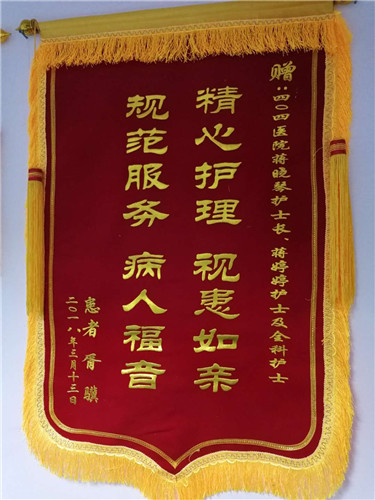 赠:四〇四医院蒋晓琴护士长、蒋婷婷护士及全科护士
精心护理 视患如亲
规范服务 病人福音
患者 胥骥
二〇一八年三月十三日